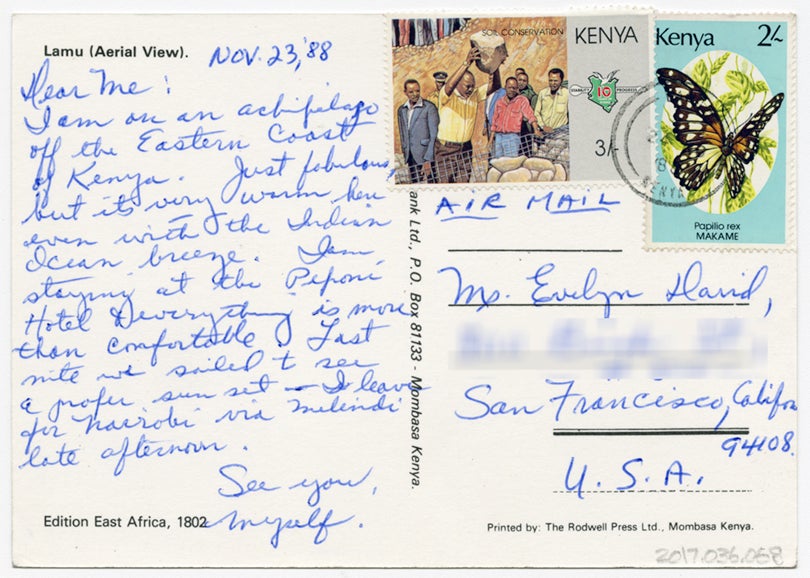 Lamu (Aerial View).
NOV. 23, '88
Dear Me:
I am on an achipelago
off the Eastern Coast
of Kenya. Just fabulous,
but its very warm here
even with the Indian
Ocean breeze. I am
staying at the Peponi
Hotel & everything is more
than comfortable. Last
nite we sailed to see
a proper sun set – I leave
for Nairobi via Melindi
late afternoon.
See you,
Myself.
Edition East Africa, 1802
ank Ltd., P.O. Box 81133 - Mombasa Kenya.
SOIL CONSERVATION
KENYA
STABILITY
10
PROGRESS
3/-
Kenya 2/-
Papilio rex
MAKAME
KENYA
AIR MAIL
Ms. Evelyn David,
San Francisco, Califor
94108.
U.S.A.
Printed by: The Rodwell Press Ltd., Mombasa Kenya.
2017.036.068